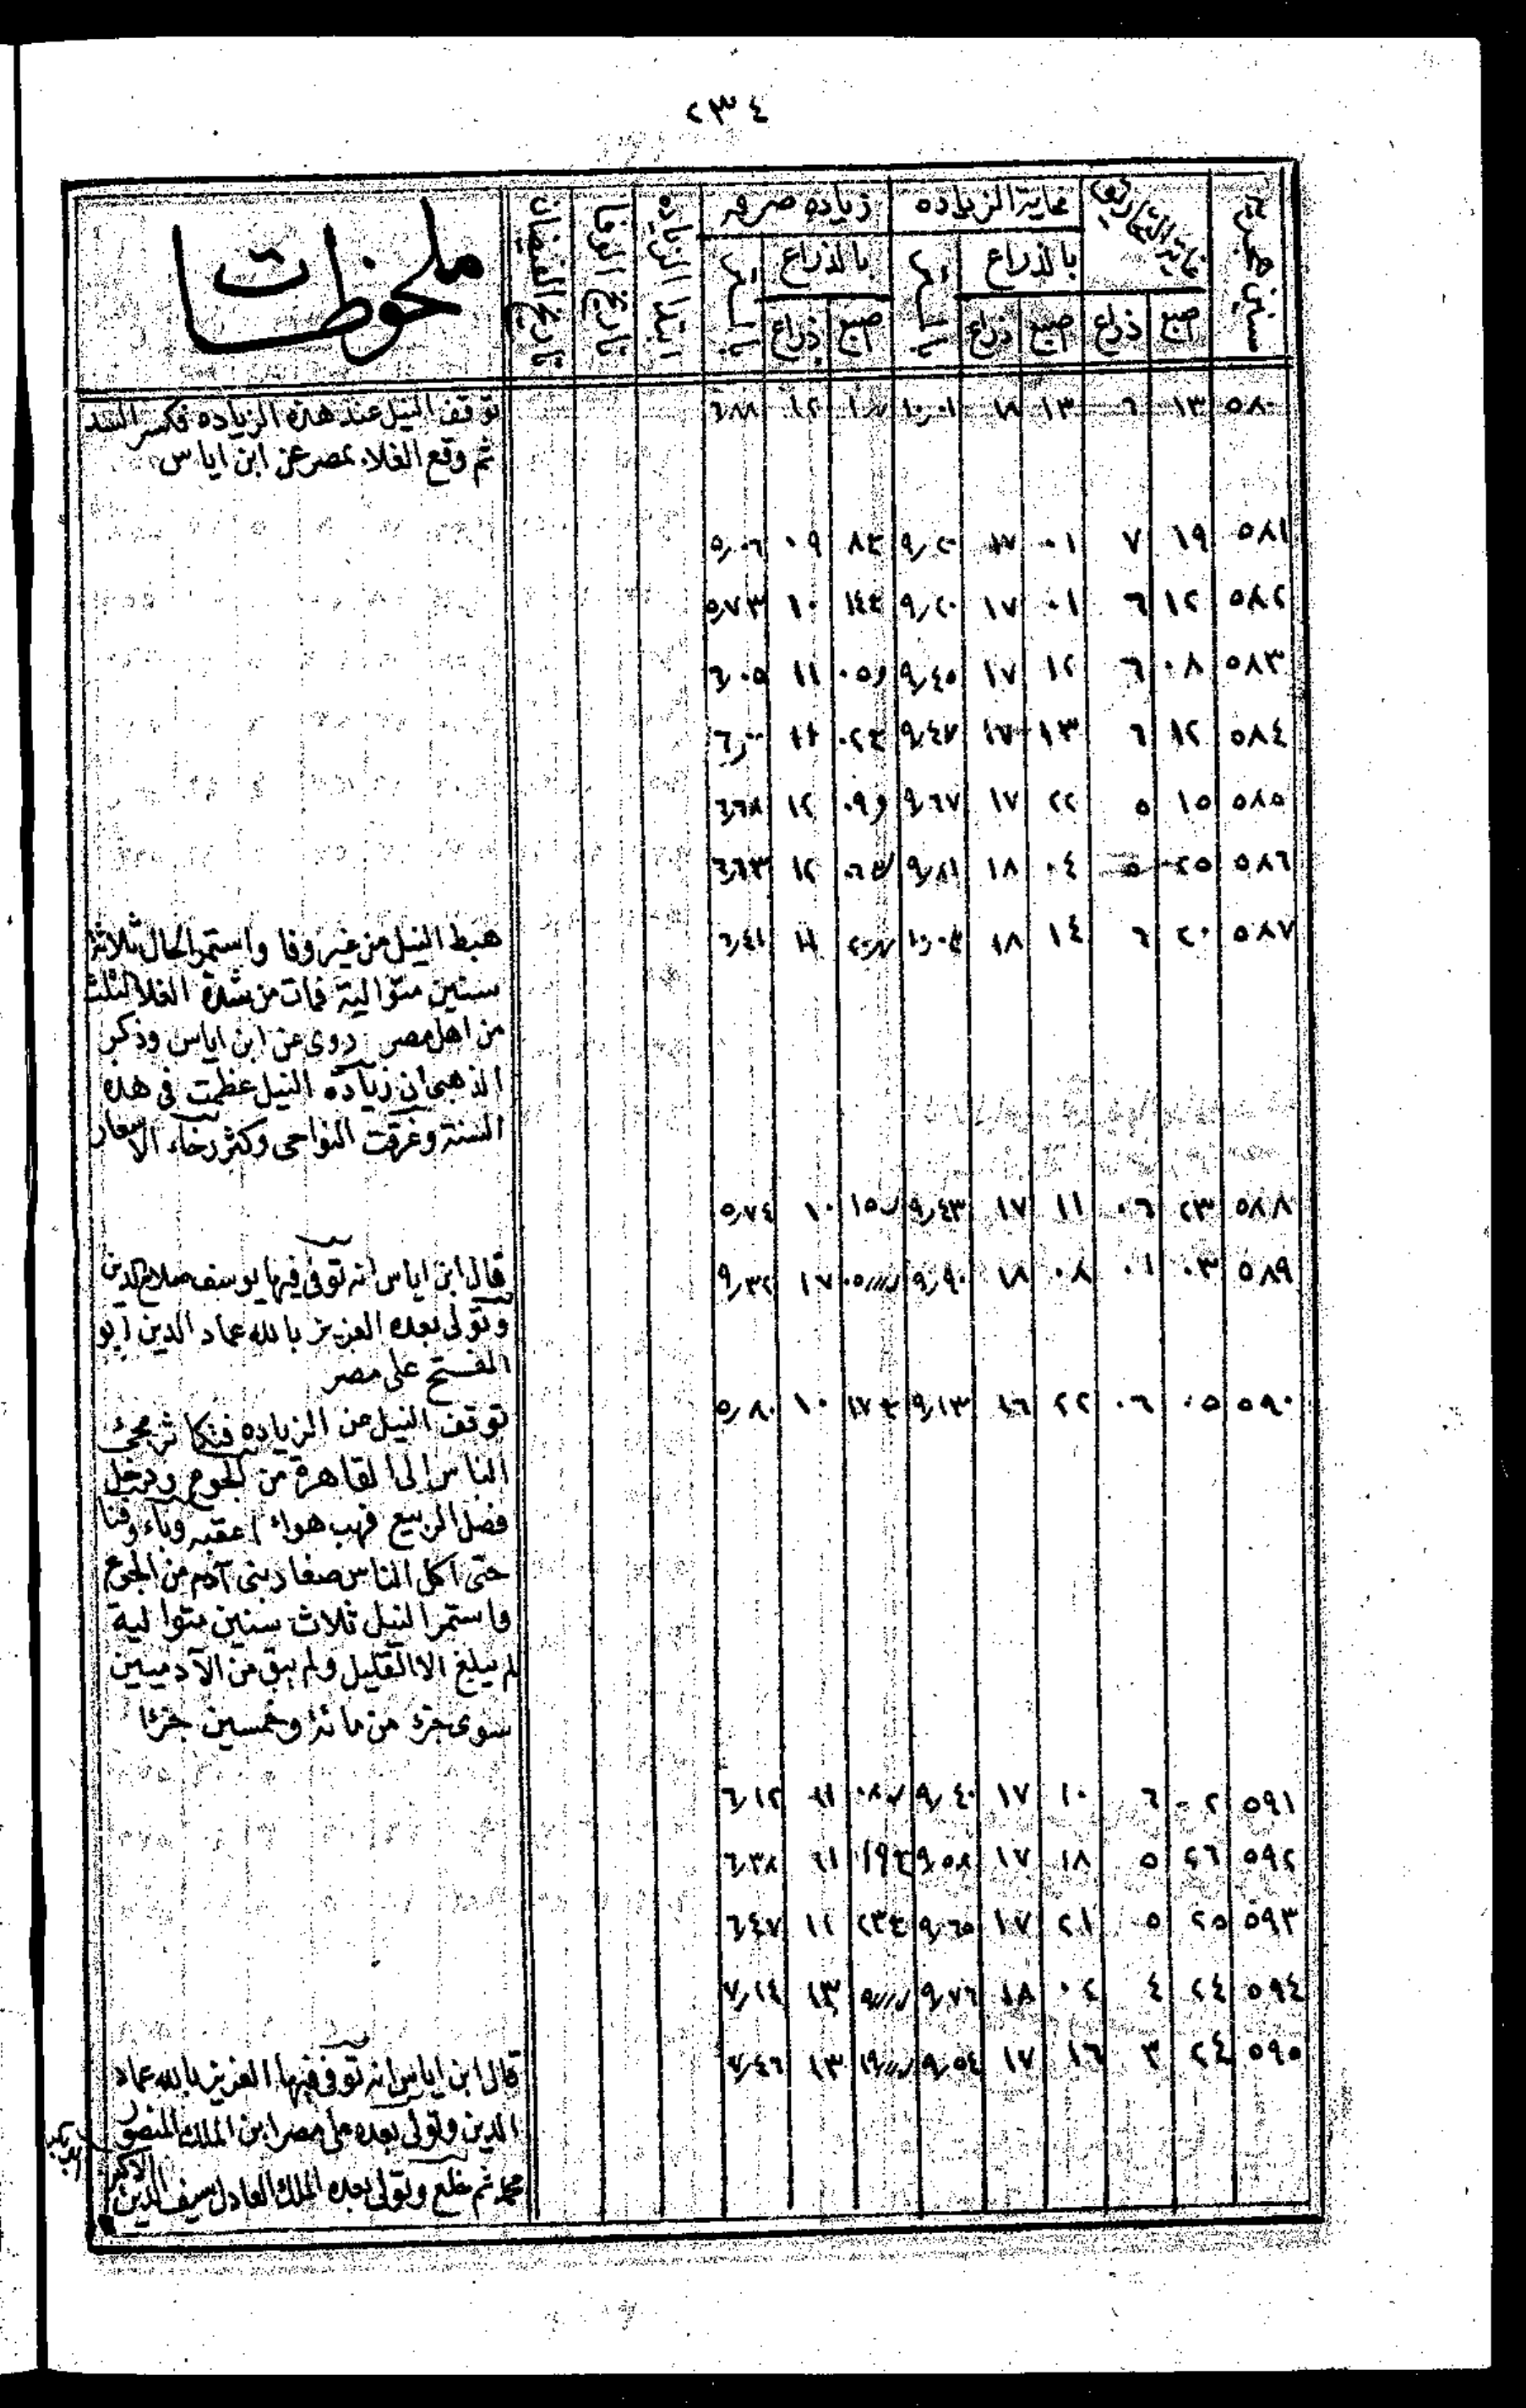 ٢٣٤
سنين هجريه
غاية التحاريق
غاية الزياده
زياده صرفه
ابتدا الزياده
تاريخ الوفا
تاريخ الفيضان
ملحوظات
بالذراع
بالذراع
صبع ذراع صبع ذراع صبع ذراع
٥٨٠ ١٣ ٦ ١٣ ١٨ ١٢ ٦٨٨
توقف النيل عند هذه الزياده فكسر السد
ثم وقع الغلاء بمصر عن ابن اياس
٥٨١ ١٩ ٧ ٠١ ١٧ ٩٫٢٠ ٠٩ ٥٫٠٦
٥٨٢ ١٢ ٦ ٠١ ١٧ ٩٫٢٠ ١٠ ٥٫٧٣
٥٨٣ ٠٨ ٦ ١٢ ١٧ ٩٫٤٥ ١١ ٦٫٠٥
٥٨٤ ١٢ ٦ ١٣ ١٧ ٩٫٤٧ ١١ ٦٫٠٠
٥٨٥ ١٥ ٥ ٢٢ ١٧ ٩٫٦٧ ١٢ ٦٫٦٨
٥٨٦ ٢٥ ٥ ٠٤ ١٨ ٩٫٨١ ١٢ ٦٫٦٣
٥٨٧ ٢٠ ٦ ١٤ ١٨ ١١ ٦٫٤١
هبط النيل من غير وفا واستمر الحال ثلاثة
سنين متوالية فمات من شدة الغلا الثلث
من اهل مصر روى عن ابن اياس وذكر
الذهبى ان زيادة النيل عظمت فى هذه
السنة وغرقت النواحى وكثر رخاء الاسعار
٥٨٨ ٢٣ ٠٦ ١١ ١٧ ٩٫٤٣ ١٠ ٥٫٧٤
٥٨٩ ٠٣ ٠١ ٠٨ ١٨ ٩٫٩٠ ١٧ ٩٫٣٢
قال ابن اياس انه توفى فيها يوسف صلاح الدين
وتولى بعده العزيز بالله عماد الدين ابو
الفتح على مصر
٥٩٠ ٠٥ ٠٦ ٢٢ ١٦ ٩٫١٣ ١٠ ٥٫٨٠
توقف النيل عن الزياده فتكاثر مجئ
الناس الى القاهرة من الجوع ودخل
فصل الربيع فهب هواء اعقبه وباء وفنا
حتى اكل الناس صغار بنى آدم من الجوع
واستمر النيل ثلاث سنين متوالية
لم يبلغ الا القليل ولم يبق من الآدميين
سوى جزء من مائة وخمسين جزءا
٥٩١ ٠٢ ٦ ١٠ ١٧ ٩٫٤٠ ١١ ٦٫١٢
٥٩٢ ٢٦ ٥ ١٨ ١٧ ٩٫٥٨ ١١ ٦٫٣٨
٥٩٣ ٢٥ ٥ ٢١ ١٧ ٩٫٦٥ ١١ ٦٫٤٧
٥٩٤ ٢٤ ٤ ٠٢ ١٨ ٩٫٧٦ ١٣ ٧٫٢٤
٥٩٥ ٢٤ ٣ ١٦ ١٧ ٩٫٥٤ ١٣ ٧٫٤٦
قال ابن اياس انه توفى فيها العزيز بالله عماد
الدين وتولى بعده على مصر ابن الملك المنصور
محمد ثم خلع وتولى بعده الملك العادل سيف الدين